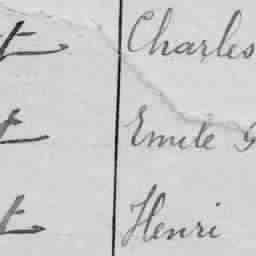 t Charles
t Emile G
t Henri